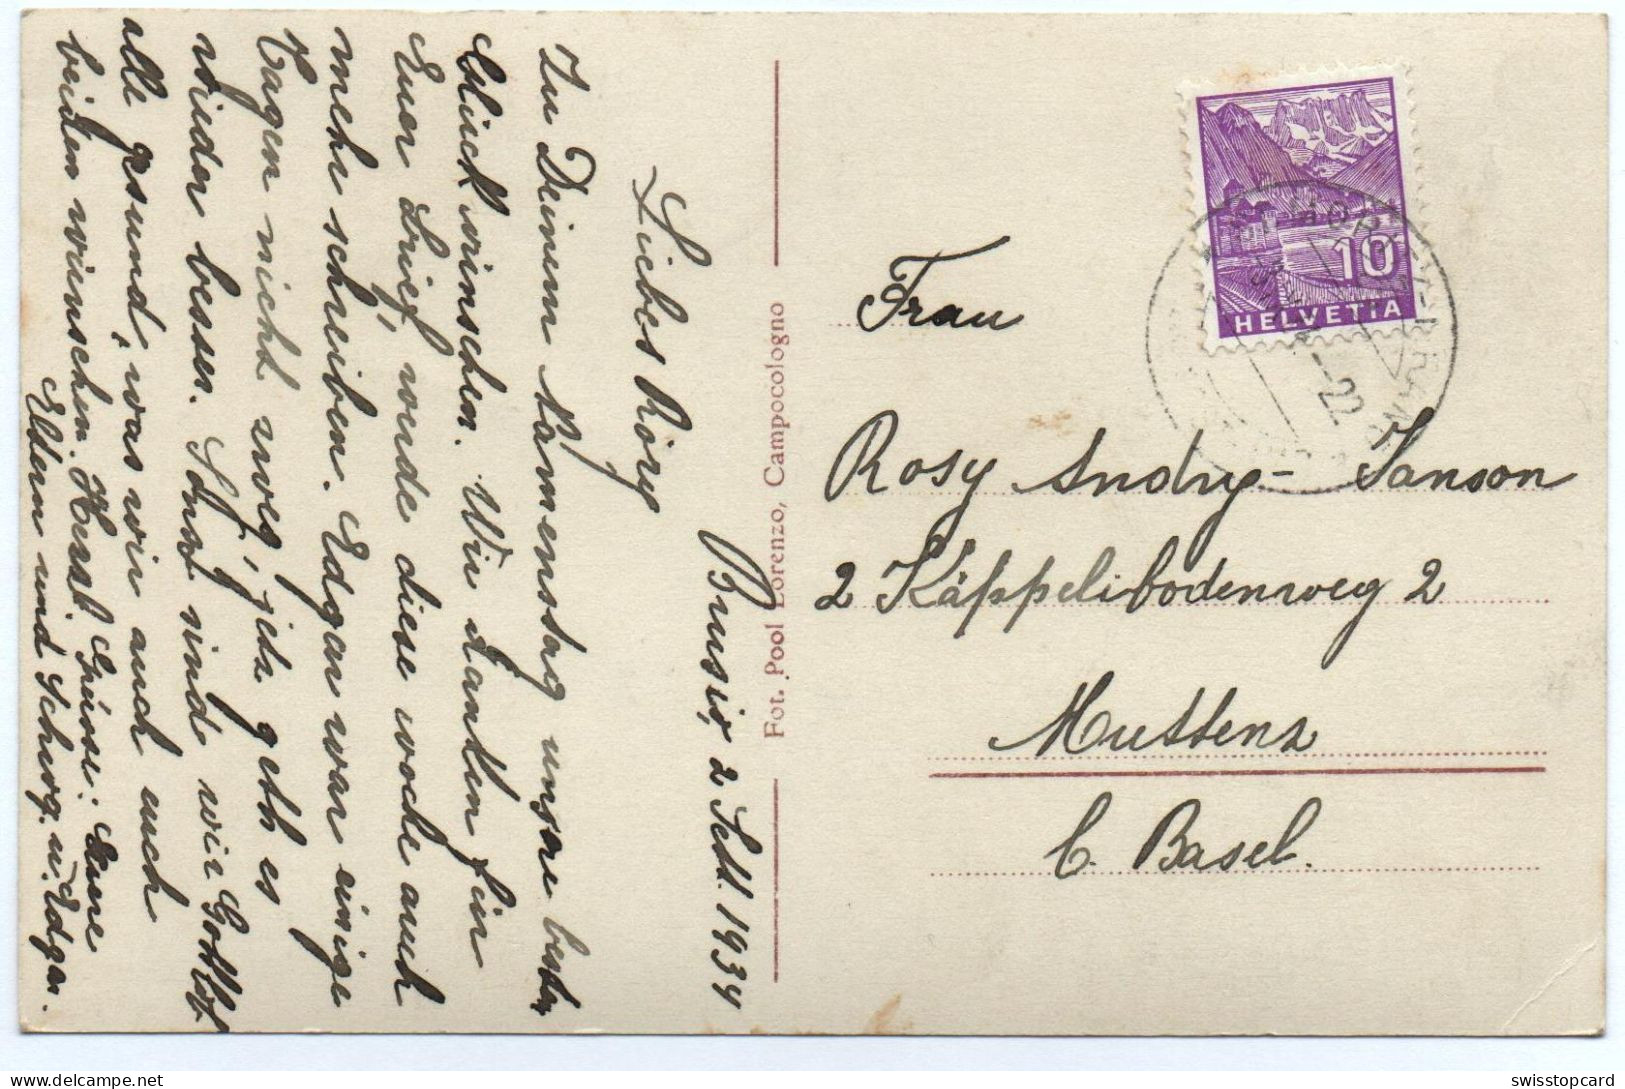 Brusio, 2 Sebt. 1934
Liebes Rösy
Zu Deinem Namenstag unsere besten
Glückwinschen. Wir danken für
Euer Brief, werde diese woche auch
mehr schreiben. Edgar war einige
Tagen nicht zweg, jetz geth es
wieder besser. Sonst sind wir Gottlob
alle gesund, was wir auch euch
beiden wünschen. Herzl. Grüsse: Eure
Eltern und Schwg. u. Edgar.
Fot. Pool Lorenzo, Campocologno
HELVETIA
10
Frau
Rosy Andry-Sanson
2 Käppelibodenweg 2
Muttenz
b. Basel.
swisstopcard